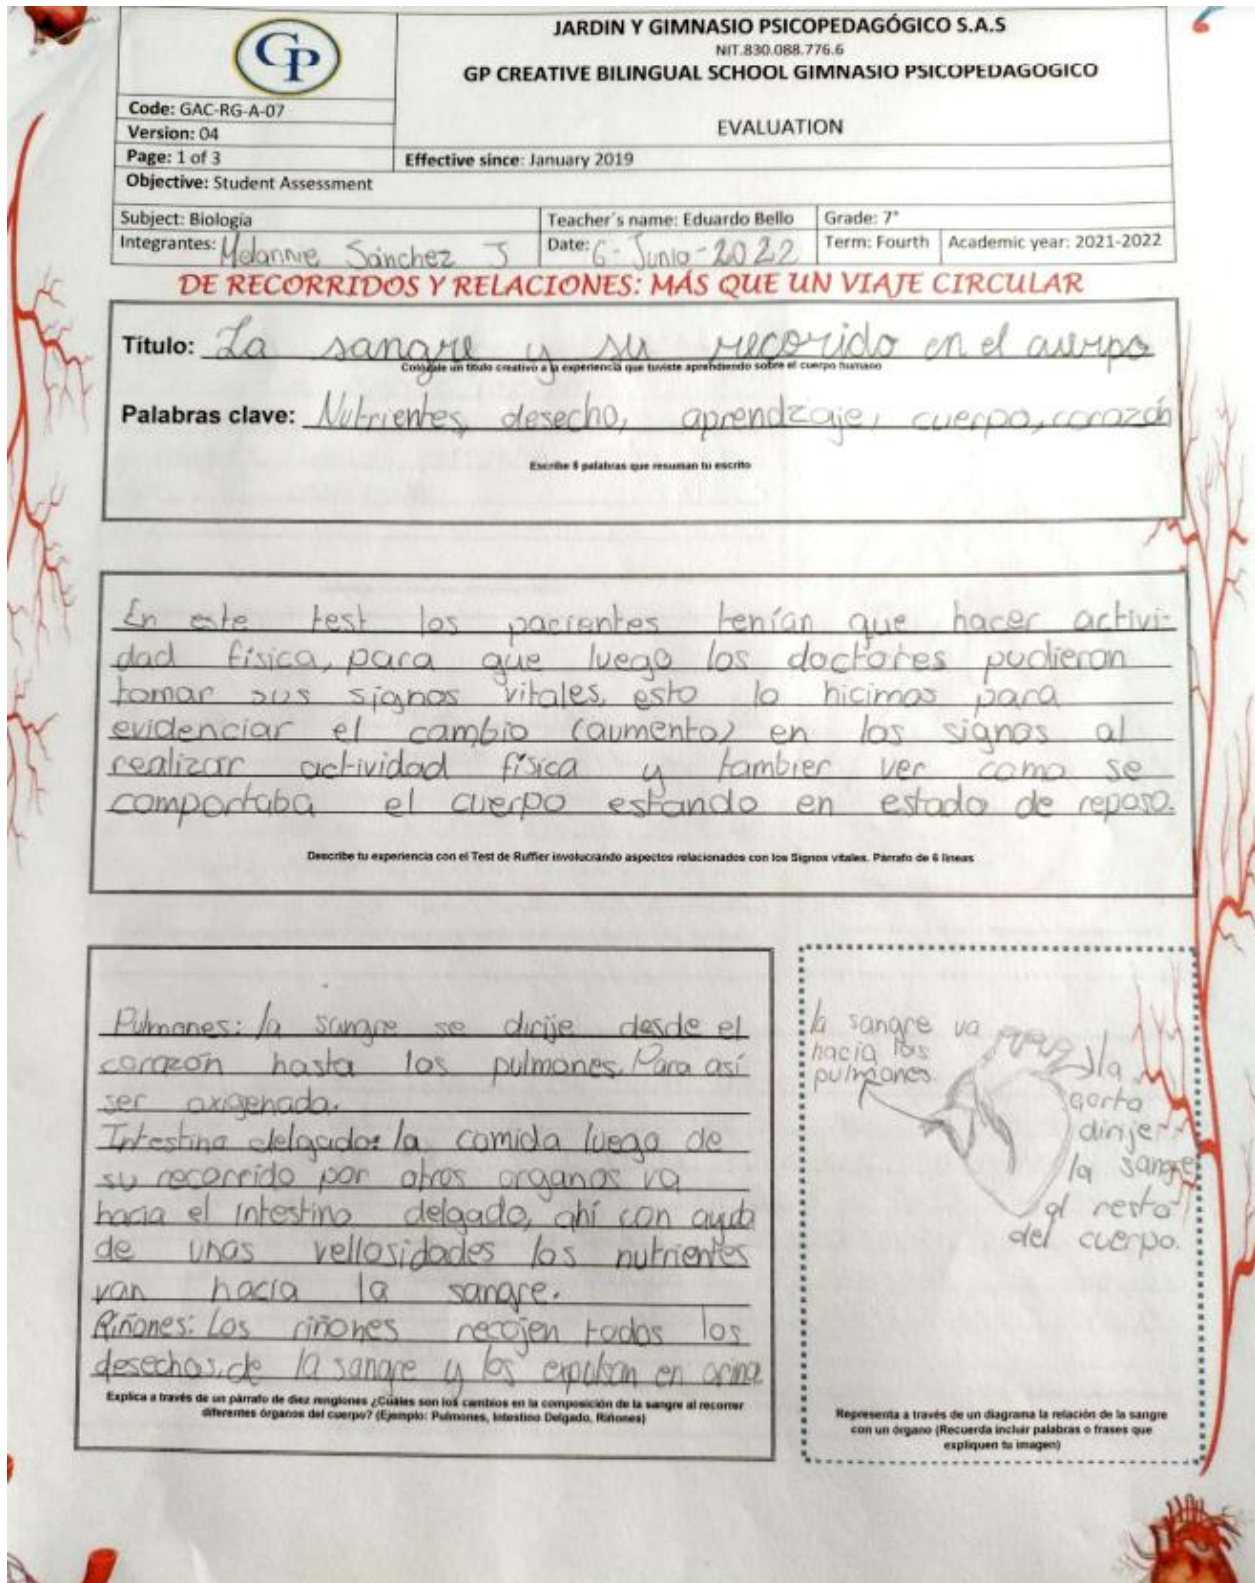 GP
JARDIN Y GIMNASIO PSICOPEDAGÓGICO S.A.S
NIT.830.088.776.6
GP CREATIVE BILINGUAL SCHOOL GIMNASIO PSICOPEDAGOGICO
Code: GAC-RG-A-07
Version: 04
EVALUATION
Page: 1 of 3
Effective since: January 2019
Objective: Student Assessment
Subject: Biología
Teacher´s name: Eduardo Bello
Grade: 7°
Integrantes: Melannie Sánchez J
Date: 6-Junio-2022
Term: Fourth
Academic year: 2021-2022
DE RECORRIDOS Y RELACIONES: MÁS QUE UN VIAJE CIRCULAR
Título: La sangre y su recorrido en el cuerpo
Colócale un título creativo a la experiencia que tuviste aprendiendo sobre el cuerpo humano
Palabras clave: Nutrientes, desecho, aprendzaje, cuerpo, corazón
Escribe 5 palabras que resuman tu escrito
En este test los pacientes tenían que hacer activi-
dad física, para que luego los doctores pudieran
tomar sus signos vitales, esto lo hicimos para
evidenciar el cambio (aumento) en los signos al
realizar actividad física y tambier ver como se
comportaba el cuerpo estando en estado de reposo.
Describe tu experiencia con el Test de Ruffier involucrando aspectos relacionados con los Signos vitales. Párrafo de 6 líneas
Pulmones: la sangre se dirije desde el
corazón hasta los pulmones. Para así
ser oxigenada.
Intestino delgado: la comida luego de
su recorrido por otros organos va
hacia el intestino delgado, ahí con ayuda
de unas vellosidades los nutrientes
van hacia la sangre.
Riñones: Los riñones recojen todos los
desechos de la sangre y los expulsan en orina
Explica a través de un párrafo de diez renglones ¿Cuáles son los cambios en la composición de la sangre al recorrer
diferentes órganos del cuerpo? (Ejemplo: Pulmones, Intestino Delgado, Riñones)
la sangre va
hacia los
pulmones
la
aorta
dirije
la sangre
al resto
del cuerpo.
Representa a través de un diagrama la relación de la sangre
con un órgano (Recuerda incluir palabras o frases que
expliquen tu imagen)